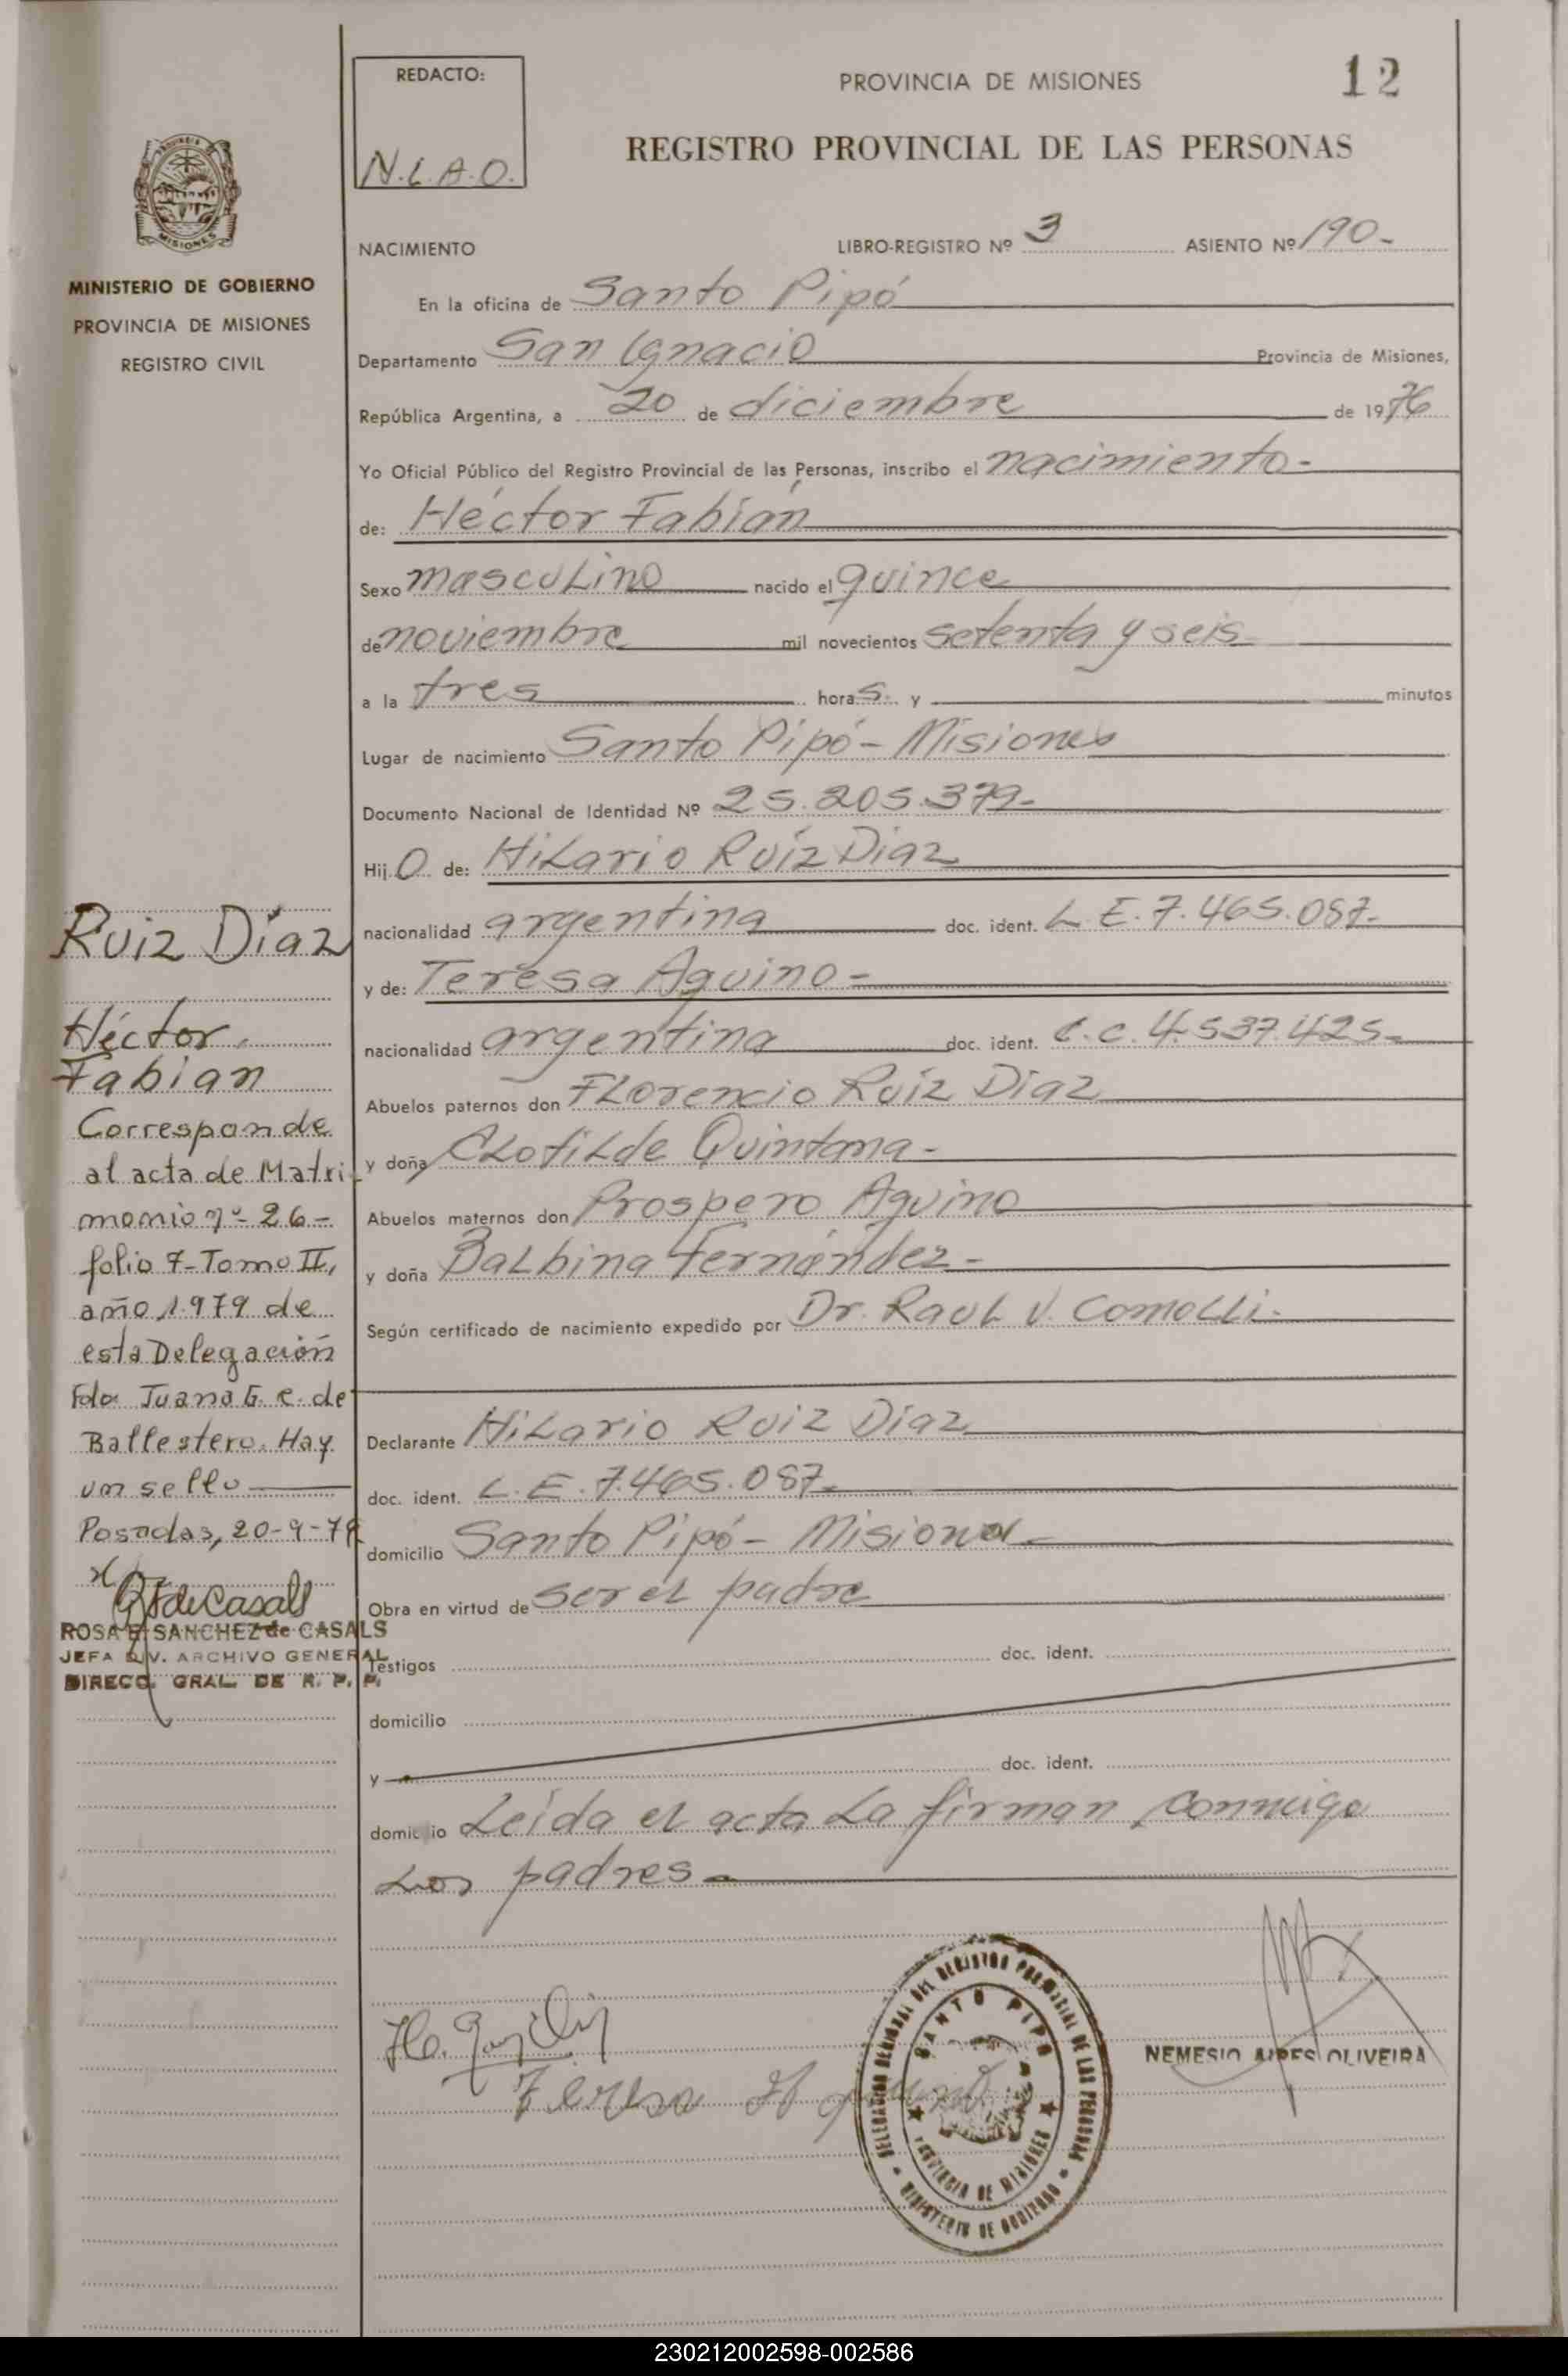 REDACTO:
N.L.A.O.
PROVINCIA DE MISIONES
12
REGISTRO PROVINCIAL DE LAS PERSONAS
MISIONES
MINISTERIO DE GOBIERNO
PROVINCIA DE MISIONES
REGISTRO CIVIL
NACIMIENTO LIBRO-REGISTRO Nº 3 ASIENTO Nº 190-
En la oficina de Santo Pipó
Departamento San Ignacio Provincia de Misiones,
República Argentina, a 20 de diciembre de 1976
Yo Oficial Público del Registro Provincial de las Personas, inscribo el nacimiento-
de: Héctor Fabián
Sexo masculino nacido el quince
de noviembre mil novecientos setenta y seis
a la tres horas y minutos
Lugar de nacimiento Santo Pipó - Misiones
Documento Nacional de Identidad Nº 25.205.379-
Hijo de: Hilario Ruíz Díaz
nacionalidad argentina doc. ident. L.E. 7.465.087-
y de: Teresa Aquino-
nacionalidad argentina doc. ident. C.C. 4.537.425-
Abuelos paternos don Florencio Ruíz Díaz
y doña Clotilde Quintana-
Abuelos maternos don Prospero Aquino
y doña Balbina Fernández-
Según certificado de nacimiento expedido por Dr. Raul V. Comolli-
Declarante Hilario Ruiz Díaz
doc. ident. L.E. 7.465.087-
domicilio Santo Pipó - Misiones
Obra en virtud de ser el padre
Testigos doc. ident.
domicilio
y doc. ident.
domicilio Leída el acta la firman conmigo
los padres-
Ruiz Díaz
Héctor
Fabián
Corresponde
al acta de Matri-
monio nº 26-
folio 7-Tomo II,
año 1.979 de
esta Delegación
Fdo. Juana G. e. de
Ballestero. Hay
un sello
Posadas, 20-9-79
RSdeCasals
ROSA E. SANCHEZ de CASALS
JEFA DIV. ARCHIVO GENERAL
DIRECC. GRAL. DE R. P. P.
Teresa Aquino
DELEGACION REGIONAL DEL REGISTRO PROVINCIAL DE LAS PERSONAS
SANTO PIPO
PROVINCIA DE MISIONES
MINISTERIO DE GOBIERNO
NEMESIO AIRES OLIVEIRA
230212002598-002586